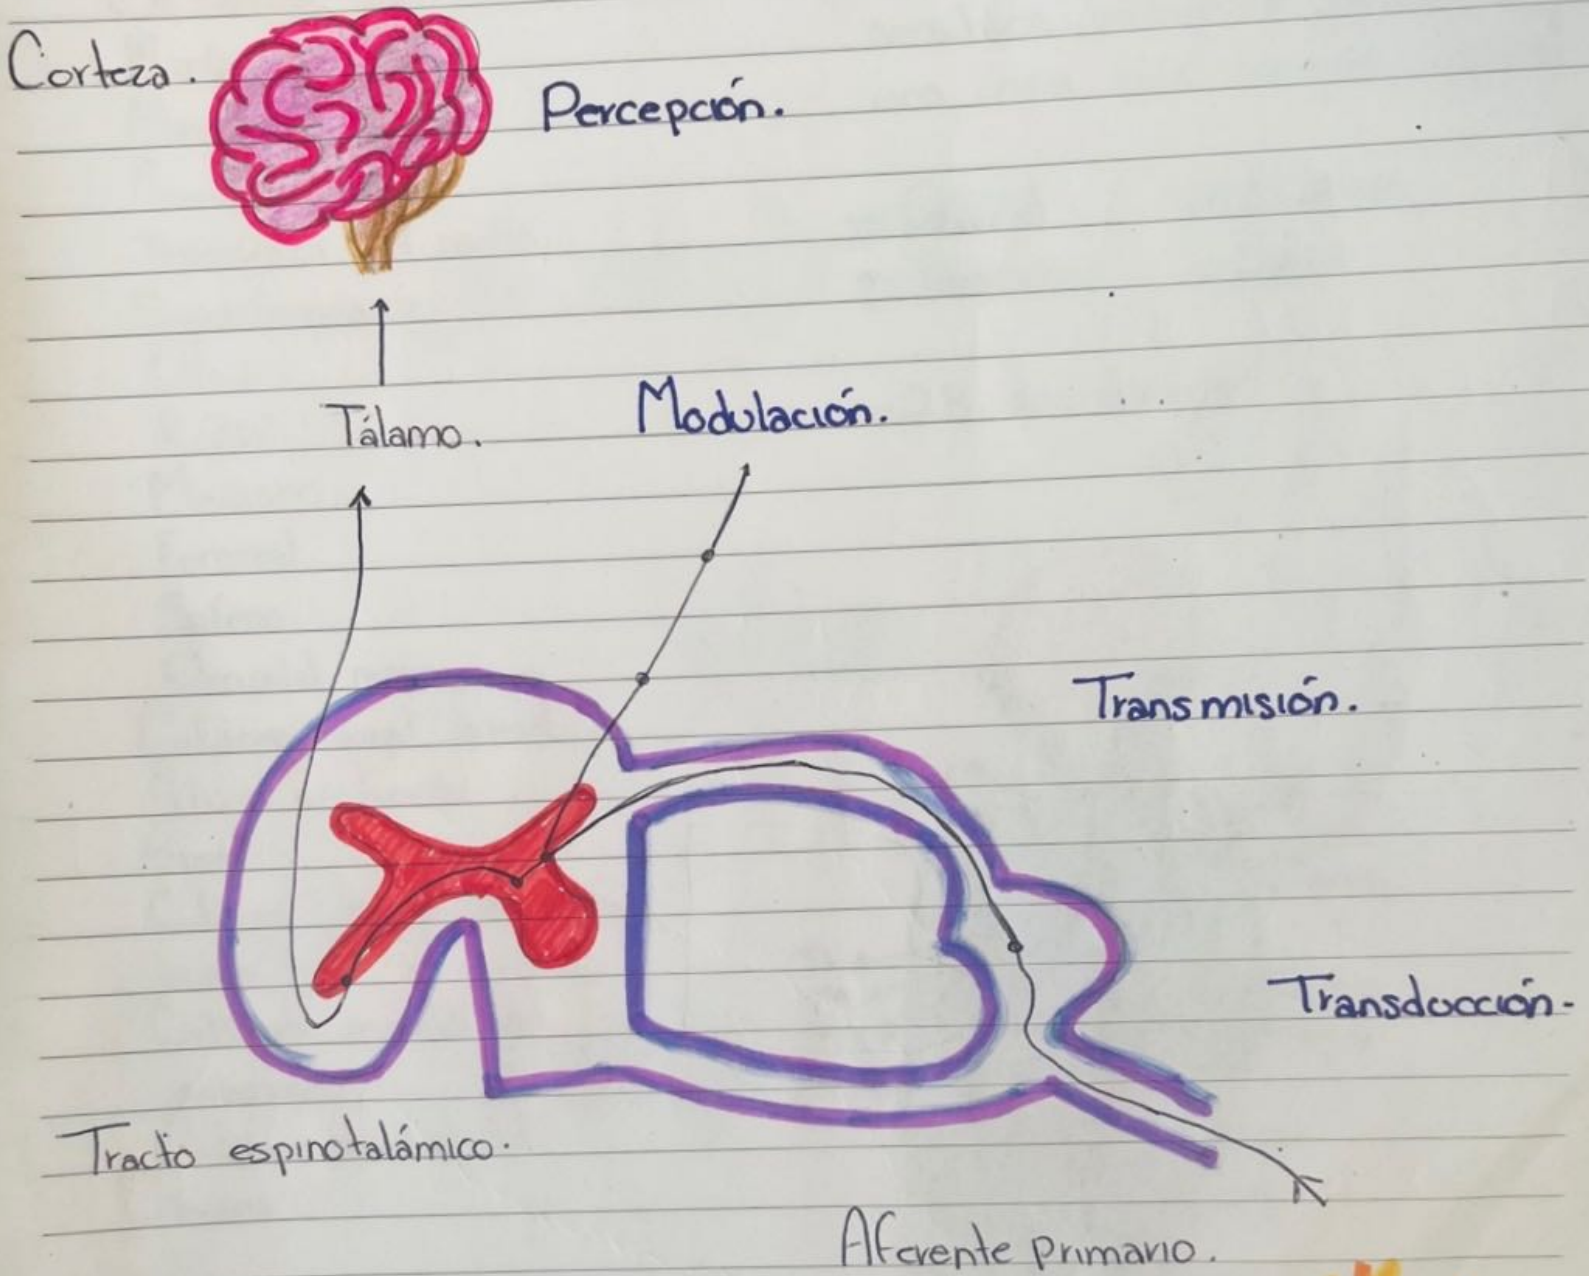 Corteza.
Percepción.
Tálamo.
Modulación.
Transmisión.
Transducción.
Tracto espinotalámico.
Aferente primario.